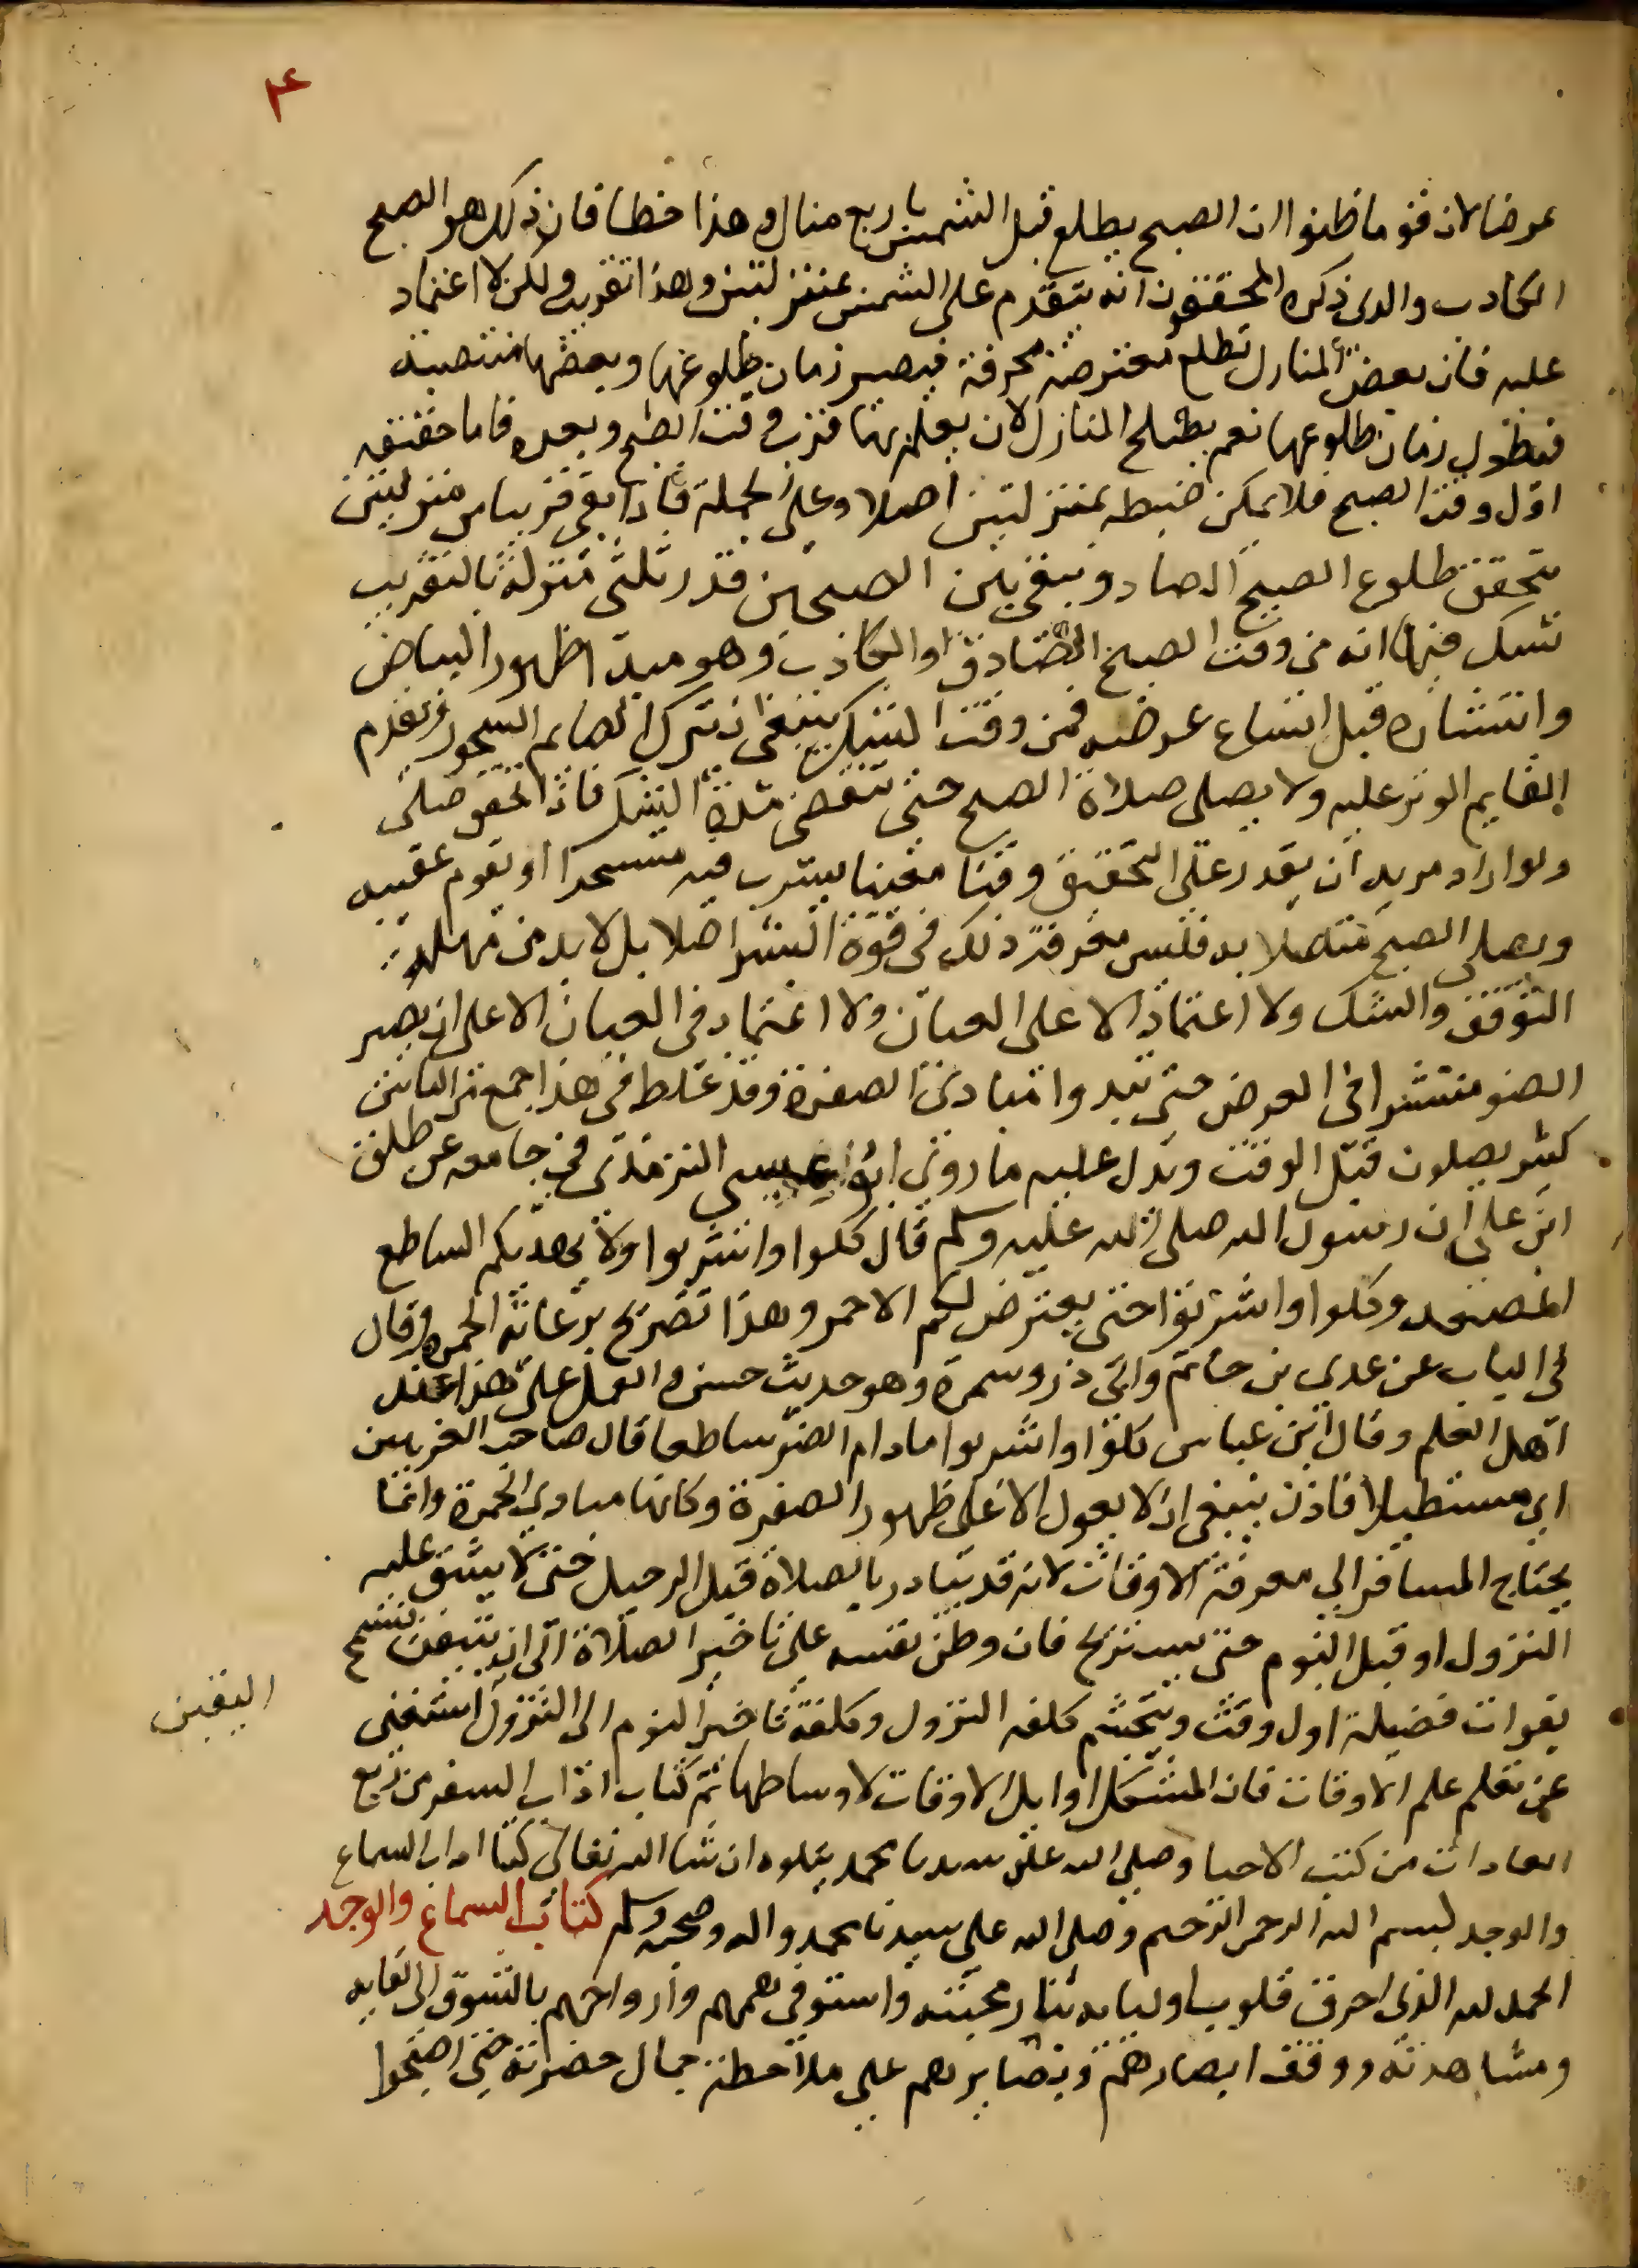 ٤
عرضا لان قوما ظنوا ان الصبح يطلع قبل الشمس باربع منازل وهذا خطا فان ذلك هو الصبح
الكاذب والذى ذكره المحققون انه يتقدم على الشمس بمنزلتين وهذا تقريب ولكن لا اعتماد
عليه فان بعض المنازل تطلع معترضة منحرفة فيصير زمان طلوعها وبعضها منتصبة
فيطول زمان طلوعها نعم يصلح المنازل لان يعلم بها قرب وقت الصبح وبعده فاما حقيقة
اول وقت الصبح فلا يمكن ضبطه بمنزلتين اصلا وعلى الجملة فاذا بقى قريبا من منزلتين
يتحقق طلوع الصبح الصادق وبقى بين الصبحين قدر ثلثى منزلة بالتقريب
يشك فيها انه من وقت الصبح الصادق او الكاذب وهو مبدا ظهور البياض
وانتشاره قبل اتساع عرضه فمن وقت الشك ينبغى ان يترك الصايم السحور ويقدم
القايم الوتر عليه ولا يصلى صلاة الصبح حتى تنقضى مدة الشك فاذا تحقق صلى
ولو اراد مريد ان يقدر على التحقيق وقتا معينا يشرب فيه متسحرا او يقوم عقيبه
ويصلى الصبح متصلا به فليس معرفة ذلك فى قوة البشر اصلا بل لا بد من مهلة
التوقف والشك ولا اعتماد الا على العيان ولا اعتماد فى العيان الا على ان يصير
الضو منتشرا فى العرض حتى تبدوا مبادئ الصفرة وقد غلط فى هذا جمع من الناس
كثير يصلون قبل الوقت ويدل عليه ما روى ابو عيسى الترمذى فى جامعه عن طلق
ابن على ان رسول الله صلى الله عليه وسلم قال كلوا واشربوا ولا يهدنكم الساطع
المصعد وكلوا واشربوا حتى يعترض لكم الاحمر وهذا تصريح برعاية الحمرة وقال
فى الباب عن عدى بن حاتم وابى ذر وسمرة وهو حديث حسن والعمل على هذا عند
اهل العلم وقال ابن عباس كلوا واشربوا ما دام الضو ساطعا قال صاحب الغريبين
اى مستطيلا فاذن ينبغى ان لا يعول الا على ظهور الصفرة وكانها مبادى الحمرة وانما
يحتاج المسافر الى معرفة الاوقات لانه قد يبادر بالصلاة قبل الرحيل حتى لا يشق عليه
النزول او قبل النوم حتى يستريح فان وطن نفسه على تاخير الصلاة الى ان يتيقن فتسمح
اليقين
بفوات فضيلة اول وقت ويتجشم كلفة النزول وكلفة تاخير النوم الى النزول استغنى
عن تعلم علم الاوقات فان المشكل اوايل الاوقات لا اوساطها تم كتاب اداب السفر من ربع
العادات من كتب الاحيا وصلى الله على سيدنا محمد يتلوه ان شا الله تعالى كتاب اداب السماع
والوجد بسم الله الرحمن الرحيم وصلى الله على سيدنا محمد واله وصحبه وسلم كتاب السماع والوجد
الحمد لله الذى احرق قلوب اوليايه بنار محبته واستوفى هممهم وارواحهم بالشوق الى لقايه
ومشاهدته ووقف ابصارهم وبصايرهم على ملاحظة جمال حضرته حتى اصبحوا